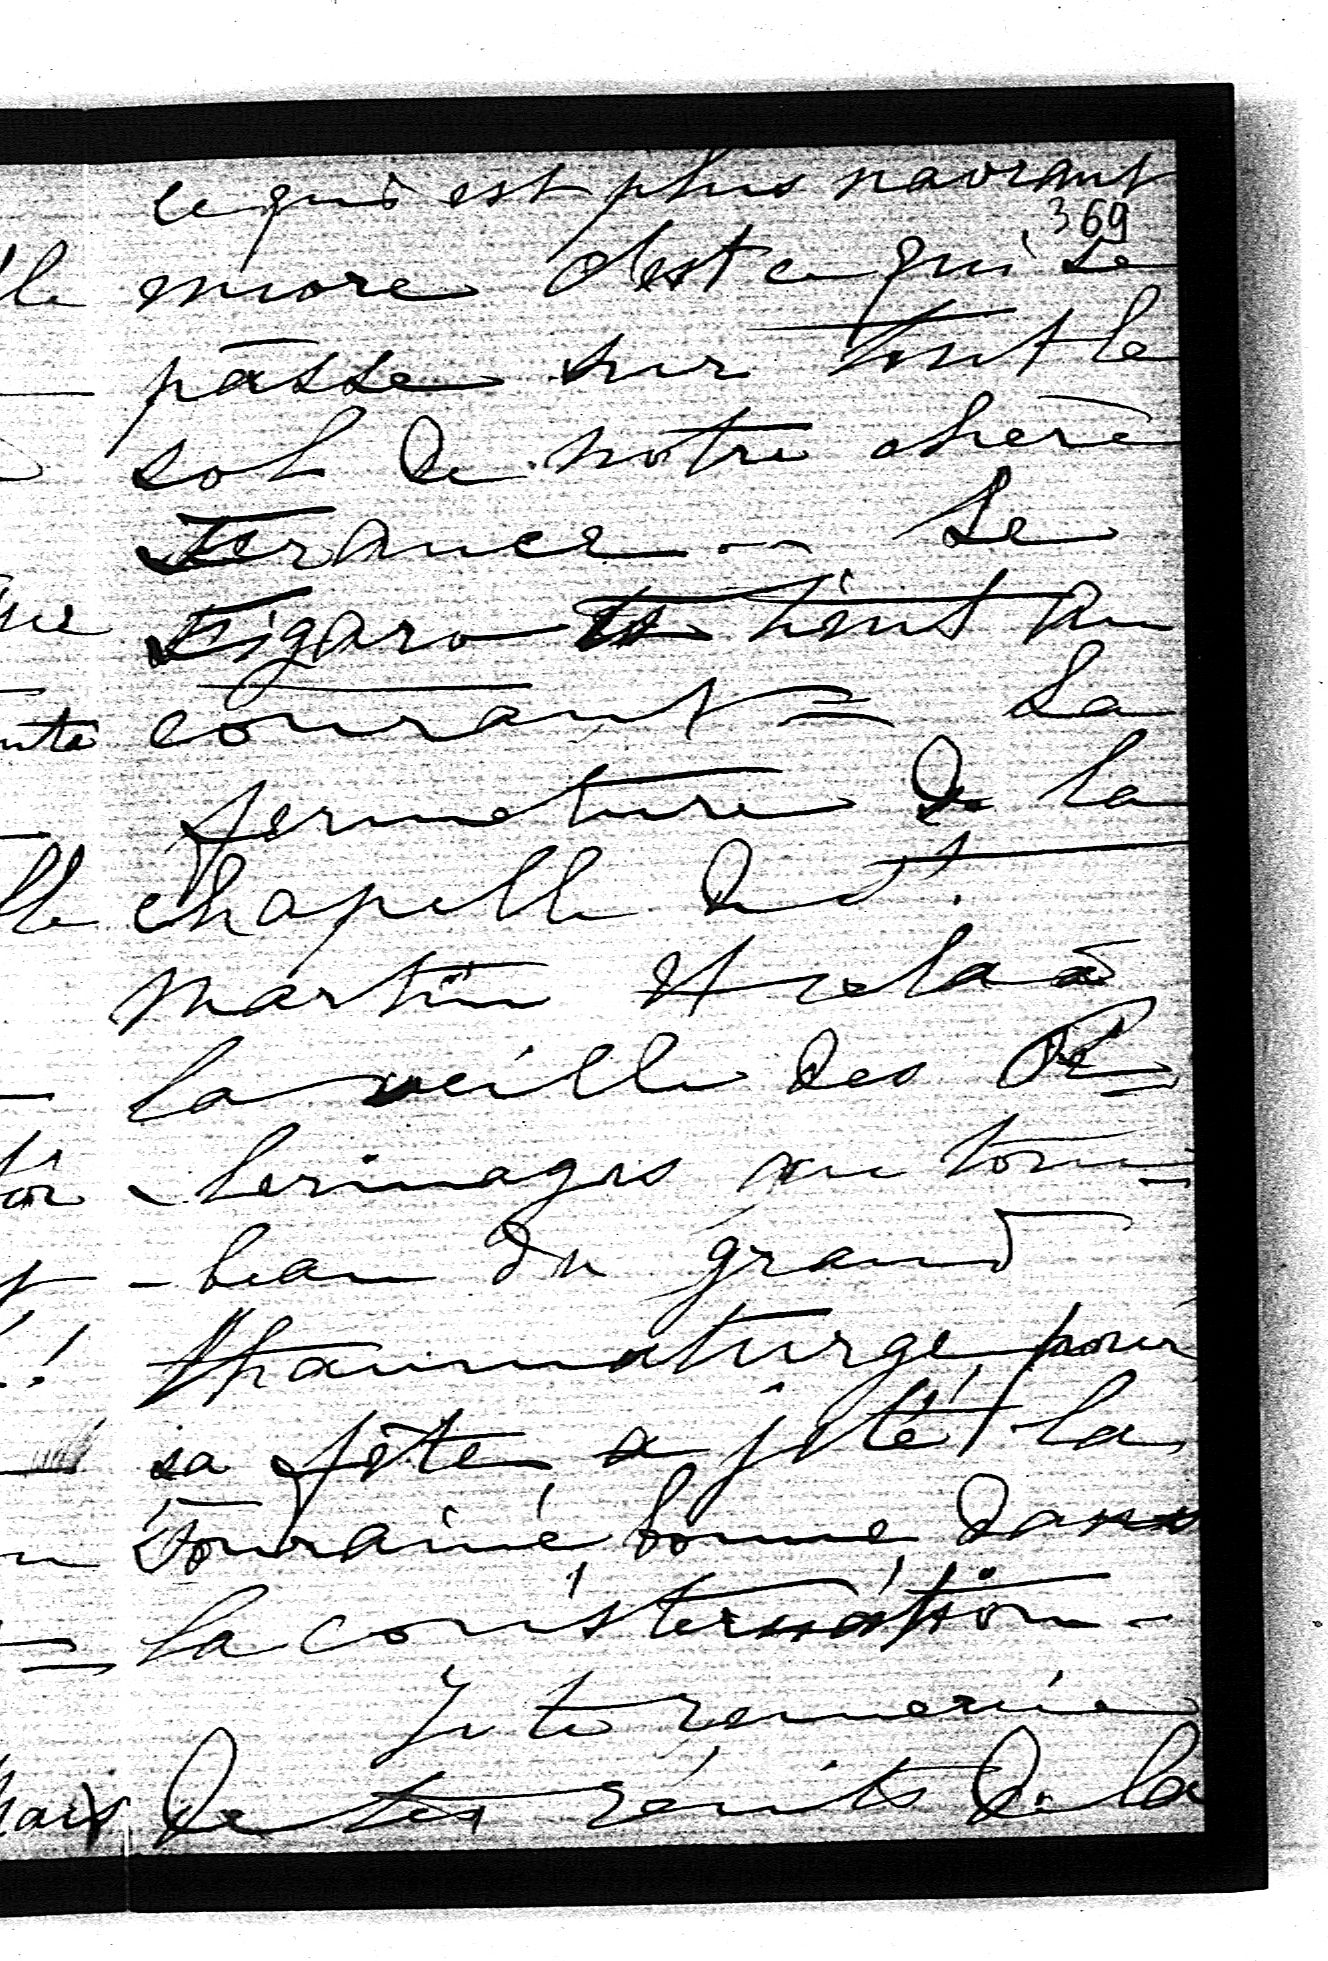 ce qui est plus navrant
369
encore c'est ce qui se
passe sur tout le
sol de notre chère
France -- Le
Figaro te tient au
courant = La
fermeture de la
chapelle de St.
Martin et cela à
la veille des Pé=
-lerinages au tom=
-beau du grand
thaumaturge, pour
sa fête, a jeté la
Touraine bonne dans
la consternation -
Je te remercie
de tes récits de la